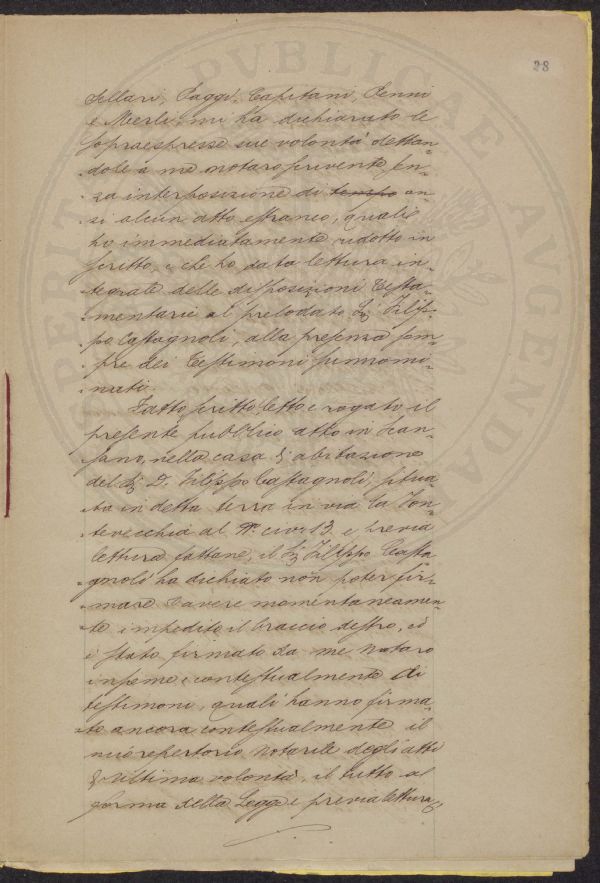 28
Sellari, Paggi, Capitani, Penni
e Merli, mi ha dichiarato le
sopraespresse sue volontà dettan-
-dole a me notaro scrivente sen-
-za interposizione di tempo an-
-zi alcun atto estraneo, quali
ho immediatamente ridotto in
scritto, e che ho data lettura in-
-tegrale delle disposizioni testa-
-mentarie al prelodato Sig Filip-
-po Castagnoli, alla presenza sem-
-pre dei Testimoni sunnomi-
-nati.
Fatto scritto letto e rogato il
presente pubblico atto in Scan-
-sano, nella casa d'abitazione
del Sig D. Filippo Castagnoli, situa-
-ta in detta terra in via la Fon-
-tevecchia al N. civ 13 e previa
lettura fattane, il Sig Filippo Casta-
-gnoli ha dichiato non poter fir-
-mare d avere momentaneamen-
-te impedito il braccio destro, ed
è stato firmato da me Notaro
insieme e contestualmente di
testimoni, quali hanno firma-
-to ancora contestualmente il
mio repertorio notarile degli atti
d'ultima volontà, il tutto al
forma della Legge e previa lettura
PERITIAE PVBLICAE AVGENDAE